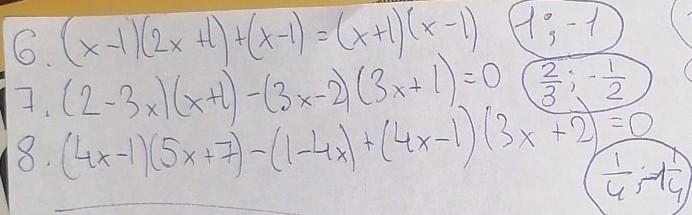 6. (x-1)(2x+1)+(x-1)=(x+1)(x-1) (1;-1)
7. (2-3x)(x+1)-(3x-2)(3x+1)=0 (2/3;-1/2)
8. (4x-1)(5x+7)-(1-4x)+(4x-1)(3x+2)=0
(1/4;-1 1/4)